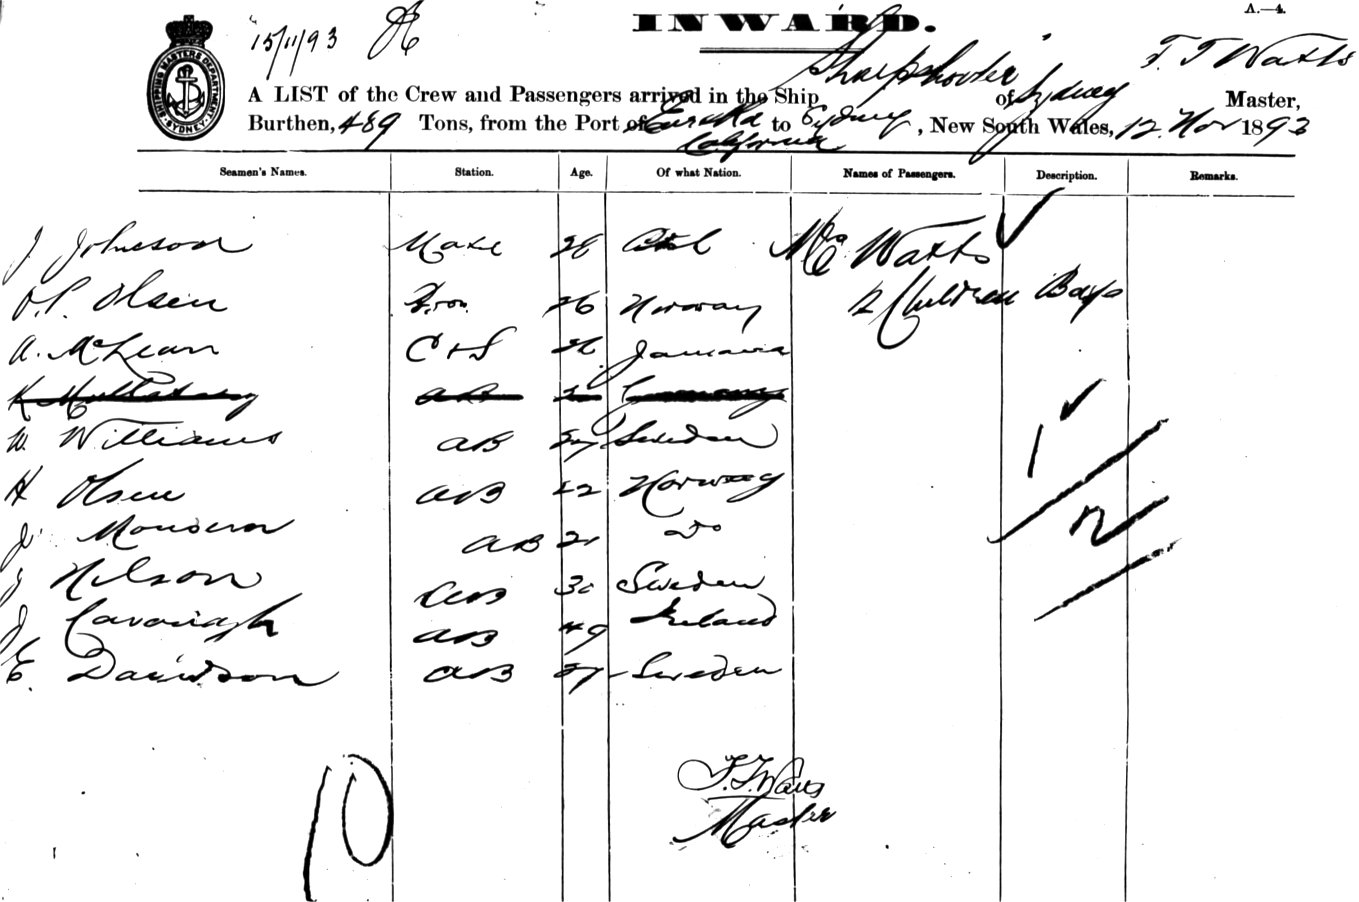 INWARD.
A.—4.
15/11/93
SHIPPING MASTERS DEPARTMENT SYDNEY
A LIST of the Crew and Passengers arrived in the Ship "Sharpshooter" of Sydney F. T Watts Master,
Burthen, 489 Tons, from the Port of Eureka California to Sydney, New South Wales, 12 Nov 1893
Seamen's Names. Station. Age. Of what Nation. Names of Passengers. Description. Remarks.
J Johnson Mate 28 Mrs Watts
O.P. Olsen 26 Norway 2 Children Boys
A. McLean C & S Jamaica
K AB Germany
W Williams AB 27 Sweden
1
H Olsen AB 22 Norway
2
J AB 21 Do
J Nilson AB 30 Sweden
J Cavanagh AB 49 Ireland
E. Davidson AB 27 Sweden
F.T. Watts
Master
10